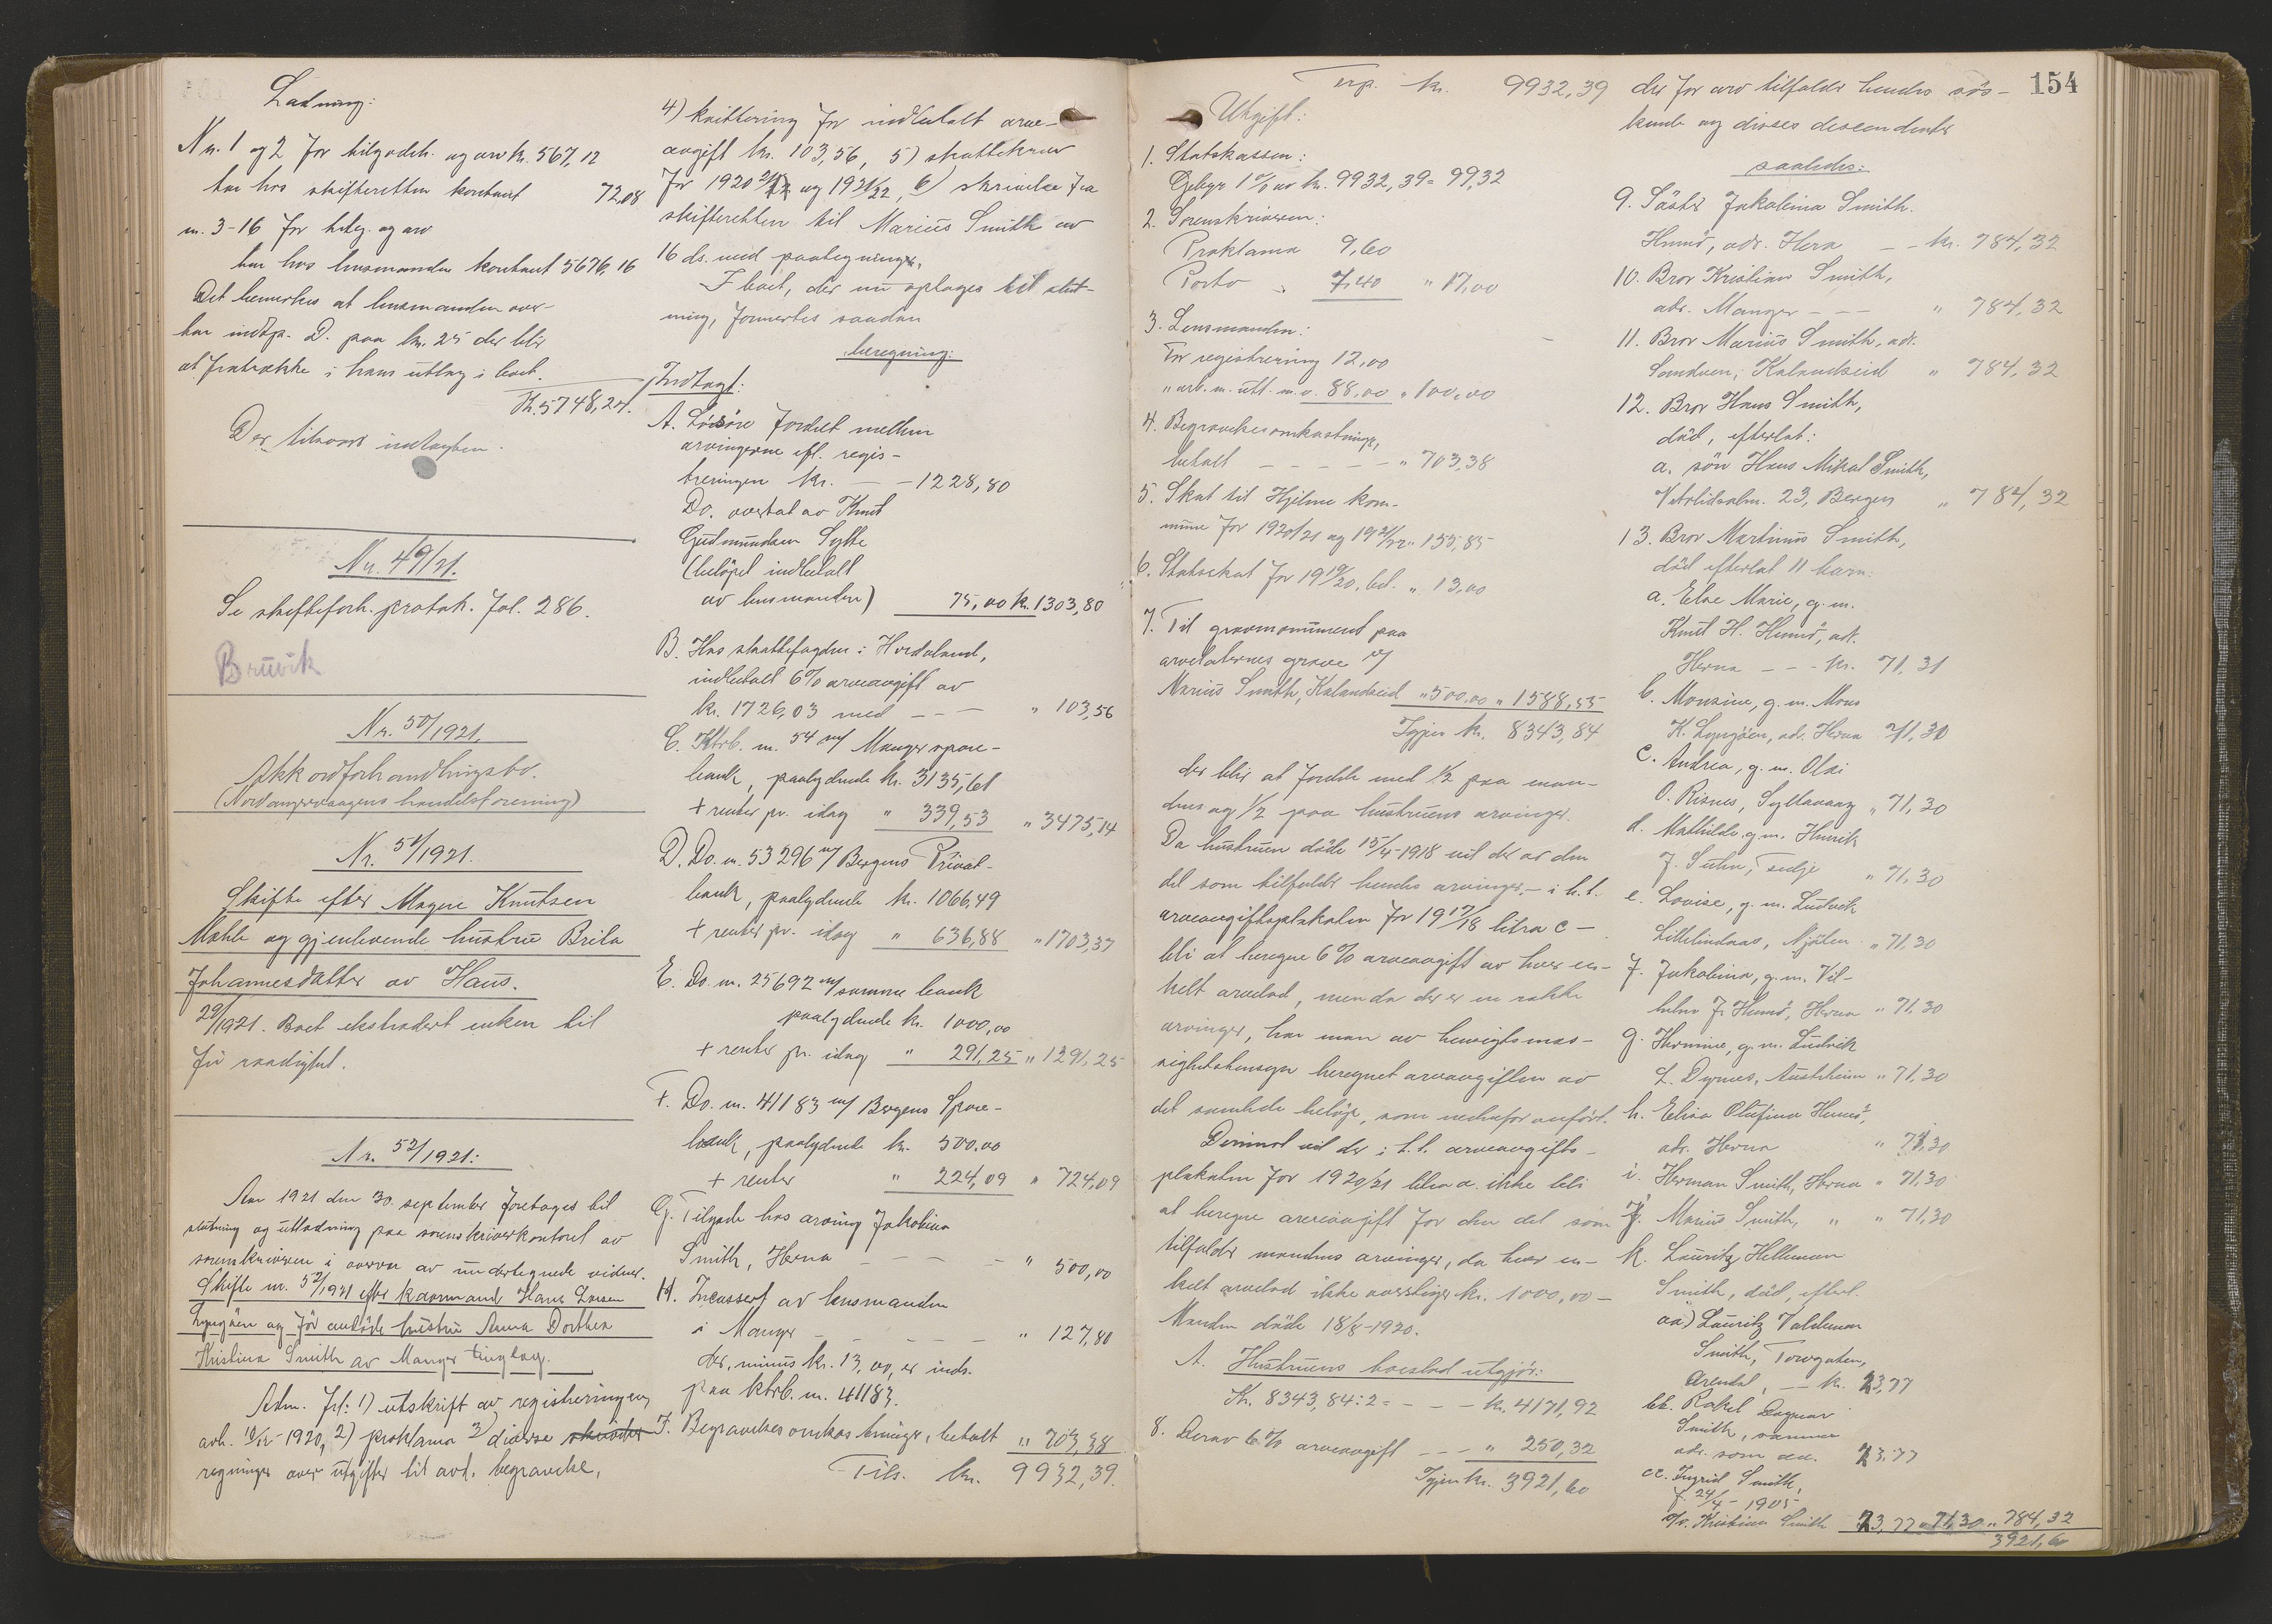 Ladning:
Nr. 1 og 2 for tilgodeh. og arv kr. 567,12
har hos skifteretten kontant 72,08
nr. 3-16 for tilg. og arv
har hos lensmanden kontant 5676,16
Det bemerkes at lensmanden over-
har indtp. D. paa kr. 25 der blir
at fratrække i hans utlæg i boet.
Kr. 5748,24.
De tilsvar indtagten.
Nr. 49/21.
Se skifteforh. protok. fol. 286.
Bruvik
Nr. 50/1921.
Akkordforhandlingsbo.
(Nordangervaagens handelsforening)
Nr. 51/1921.
Skifte efter Mogne Knutsen
Mohle og gjenlevende hustru Brita
Johannesdatter av Haus.
29/1921. Boet ekstradert enken til
fri raadighet.
Nr. 52/1921:
Aar 1921 den 30. september foretages til
slutning og utlodning paa sorenskriverkontoret av
sorenskriveren i overvær av undertegnede vidner.
Skifte nr. 52/1921 efter kaarmand Hans Larsen
Lyngöen og för avdöde hustru Anna Dorthea
Kristina Smith av Manger tinglag.
Adm. frl: 1) utskrift av registreringen
avh. 10/12-1920, 2) proklama 3) diverse skiöter
regninger over utgifter til avd. begravelse,
4) kvittering for indbetalt arve-
avgift kr. 103,56, 5) skattekrav
for 1920/21 og 1921/22, 6) skrivelse fra
skifteretten til Marius Smith av
16 ds. med paategning.
I boet, der nu optages til slut-
ning, formertes saadan
beregning:
Indtægt:
A. Lösöre fordelt mellem
arvingerne efl. regis-
treringen kr. — - 1228,80
Do. overtat av Knut
Gudmundsen Sylte
(belöpet indbetalt
av lensmanden) 75,00 kr. 1303,80
B. Hos skattefogden i Hordaland,
indbetalt 6% arveavgift av
kr. 1726,03 med - - — " 103,56
C. Ktrb. nr. 54 m/ Manger spare-
bank, paalydende kr. 3135,61
+ renter pr. idag " 339,53 " 3475,14
D. Do. nr. 53296 m/ Bergens Privat-
bank, paalydende kr. 1066,49
+ renter pr. idag " 636,88 " 1703,37
E. Do. nr. 25692 m/ samme bank
paalydende kr. 1000,00
+ renter pr. idag " 291,25 " 1291,25
F. Do. nr. 41183 m/ Bergens Spare-
bank, paalydende kr. 500,00
+ renter " 224,09 " 724,09
G. Tilgode hos arving Jakobina
Smith, Herna — — - " 500,00
H. Incassert av lensmanden
i Manger - — - — — " 127,80
der, minus kr. 13,00, er inds.
paa ktrb. nr. 41183.
I. Begravelsesomkostninger, betalt " 703,38
Tils. kr. 9932,39.
Trp. kr. 9932,39
Utgift:
1. Statskassen:
Gebyr 1% av kr. 9932,39 = 99,32
2. Sorenskriveren:
Proklama 9,60
Porto " 7,40 " 17,00
3. Lensmanden:
For registrering 12,00
" arb. m. utl. m.v. 88,00 " 100,00
4. Begravelsesomkostninger,
betalt - - - - - " 703,38
5. Skat til Hjelme kom-
mune for 1920/21 og 1921/22 " 155,85
6. Statsskat for 1919/20, bet. " 13,00
7. Til gravmonument paa
arveladernes grave v/
Marius Smith, Kalandseid " 500,00 " 1588,55
Igjen kr. 8343,84
der blir at fordele med 1/2 paa man-
dens og 1/2 paa hustruens arvinger.
Da hustruen döde 15/4-1918 vil der av den
del som tilfalder hendes arvinger, - i h.t.
arveavgiftsplakaten for 1917/18 litra c —
bli at beregne 6% arveavgift av hver en-
kelt arvelod, men da der er en række
arvinger, har man av hensigtsmæs-
sighetshensyn beregnet arveavgiften av
det samlede belöp, som nedenfor anført.
Derimot vil der i h.t. arveavgifts-
plakaten for 1920/21 litra a. ikke bli
at beregne arveavgift for den del som
tilfalder mandens arvinger, da hver en-
kelt arvelod ikke overstiger kr. 1000,00 —
Manden döde 18/8-1920.
A. Hustruens boeslod utgjör:
Kr. 8343,84 : 2 = - - - kr. 4171,92
8. Derav 6% arveavgift - - - " 250,32
Igjen kr. 3921,60
154
der for arv tilfalder hendes sös-
kende og disses descendenter
saaledes:
9. Söster Jakobina Smith.
Hunnö, adr. Herna - - kr. 784,32
10. Bror Kristian Smith,
adr. Manger - - - " 784,32
11. Bror Marius Smith, adr.
Samdven, Kalandseid " 784,32
12. Bror Hans Smith,
död, efterlat:
a. sön Hans Mikal Smith,
Vetrlidsalm. 23, Bergen " 784,32
13. Bror Martinus Smith,
död efterlat 11 barn:
a. Else Marie, g. m.
Knut H. Hunnö, adr.
Herna - - - kr. 71,31
b. Monsine, g. m. Mons
K. Lyngöen, adr. Herna 71,30
c. Andrea, g. m. Olai
O. Risnes, Syltavaag " 71,30
d. Mathilde, g. m. Henrik
J. Suhn, Sedje " 71,30
e. Lovise, g. m. Ludvik
Litlelindaas, Njöten " 71,30
f. Jakobina, g. m. Vil-
helm J. Hunnö, Herna " 71,30
g. Hermine, g. m. Ludvik
L. Dyrnes, Austrheim " 71,30
h. Elisa Olufina Hunnö,
adr. Herna " 71,30
i. Herman Smith, Herna " 71,30
j. Marius Smith, " " 71,30
k. Lauritz Helleman
Smith, död, efterl.
aa) Lauritz Valdemar
Smith, Torvgaten,
Arendal, — kr. 23,77
bb. Rakel Dagmar
Smith, samme
adr. som aa. 23,77
cc. Ingrid Smith,
f. 24/4 - 1905
v/v. Kristian Smith 23,77 " 71,30 " 784,32
3921,60